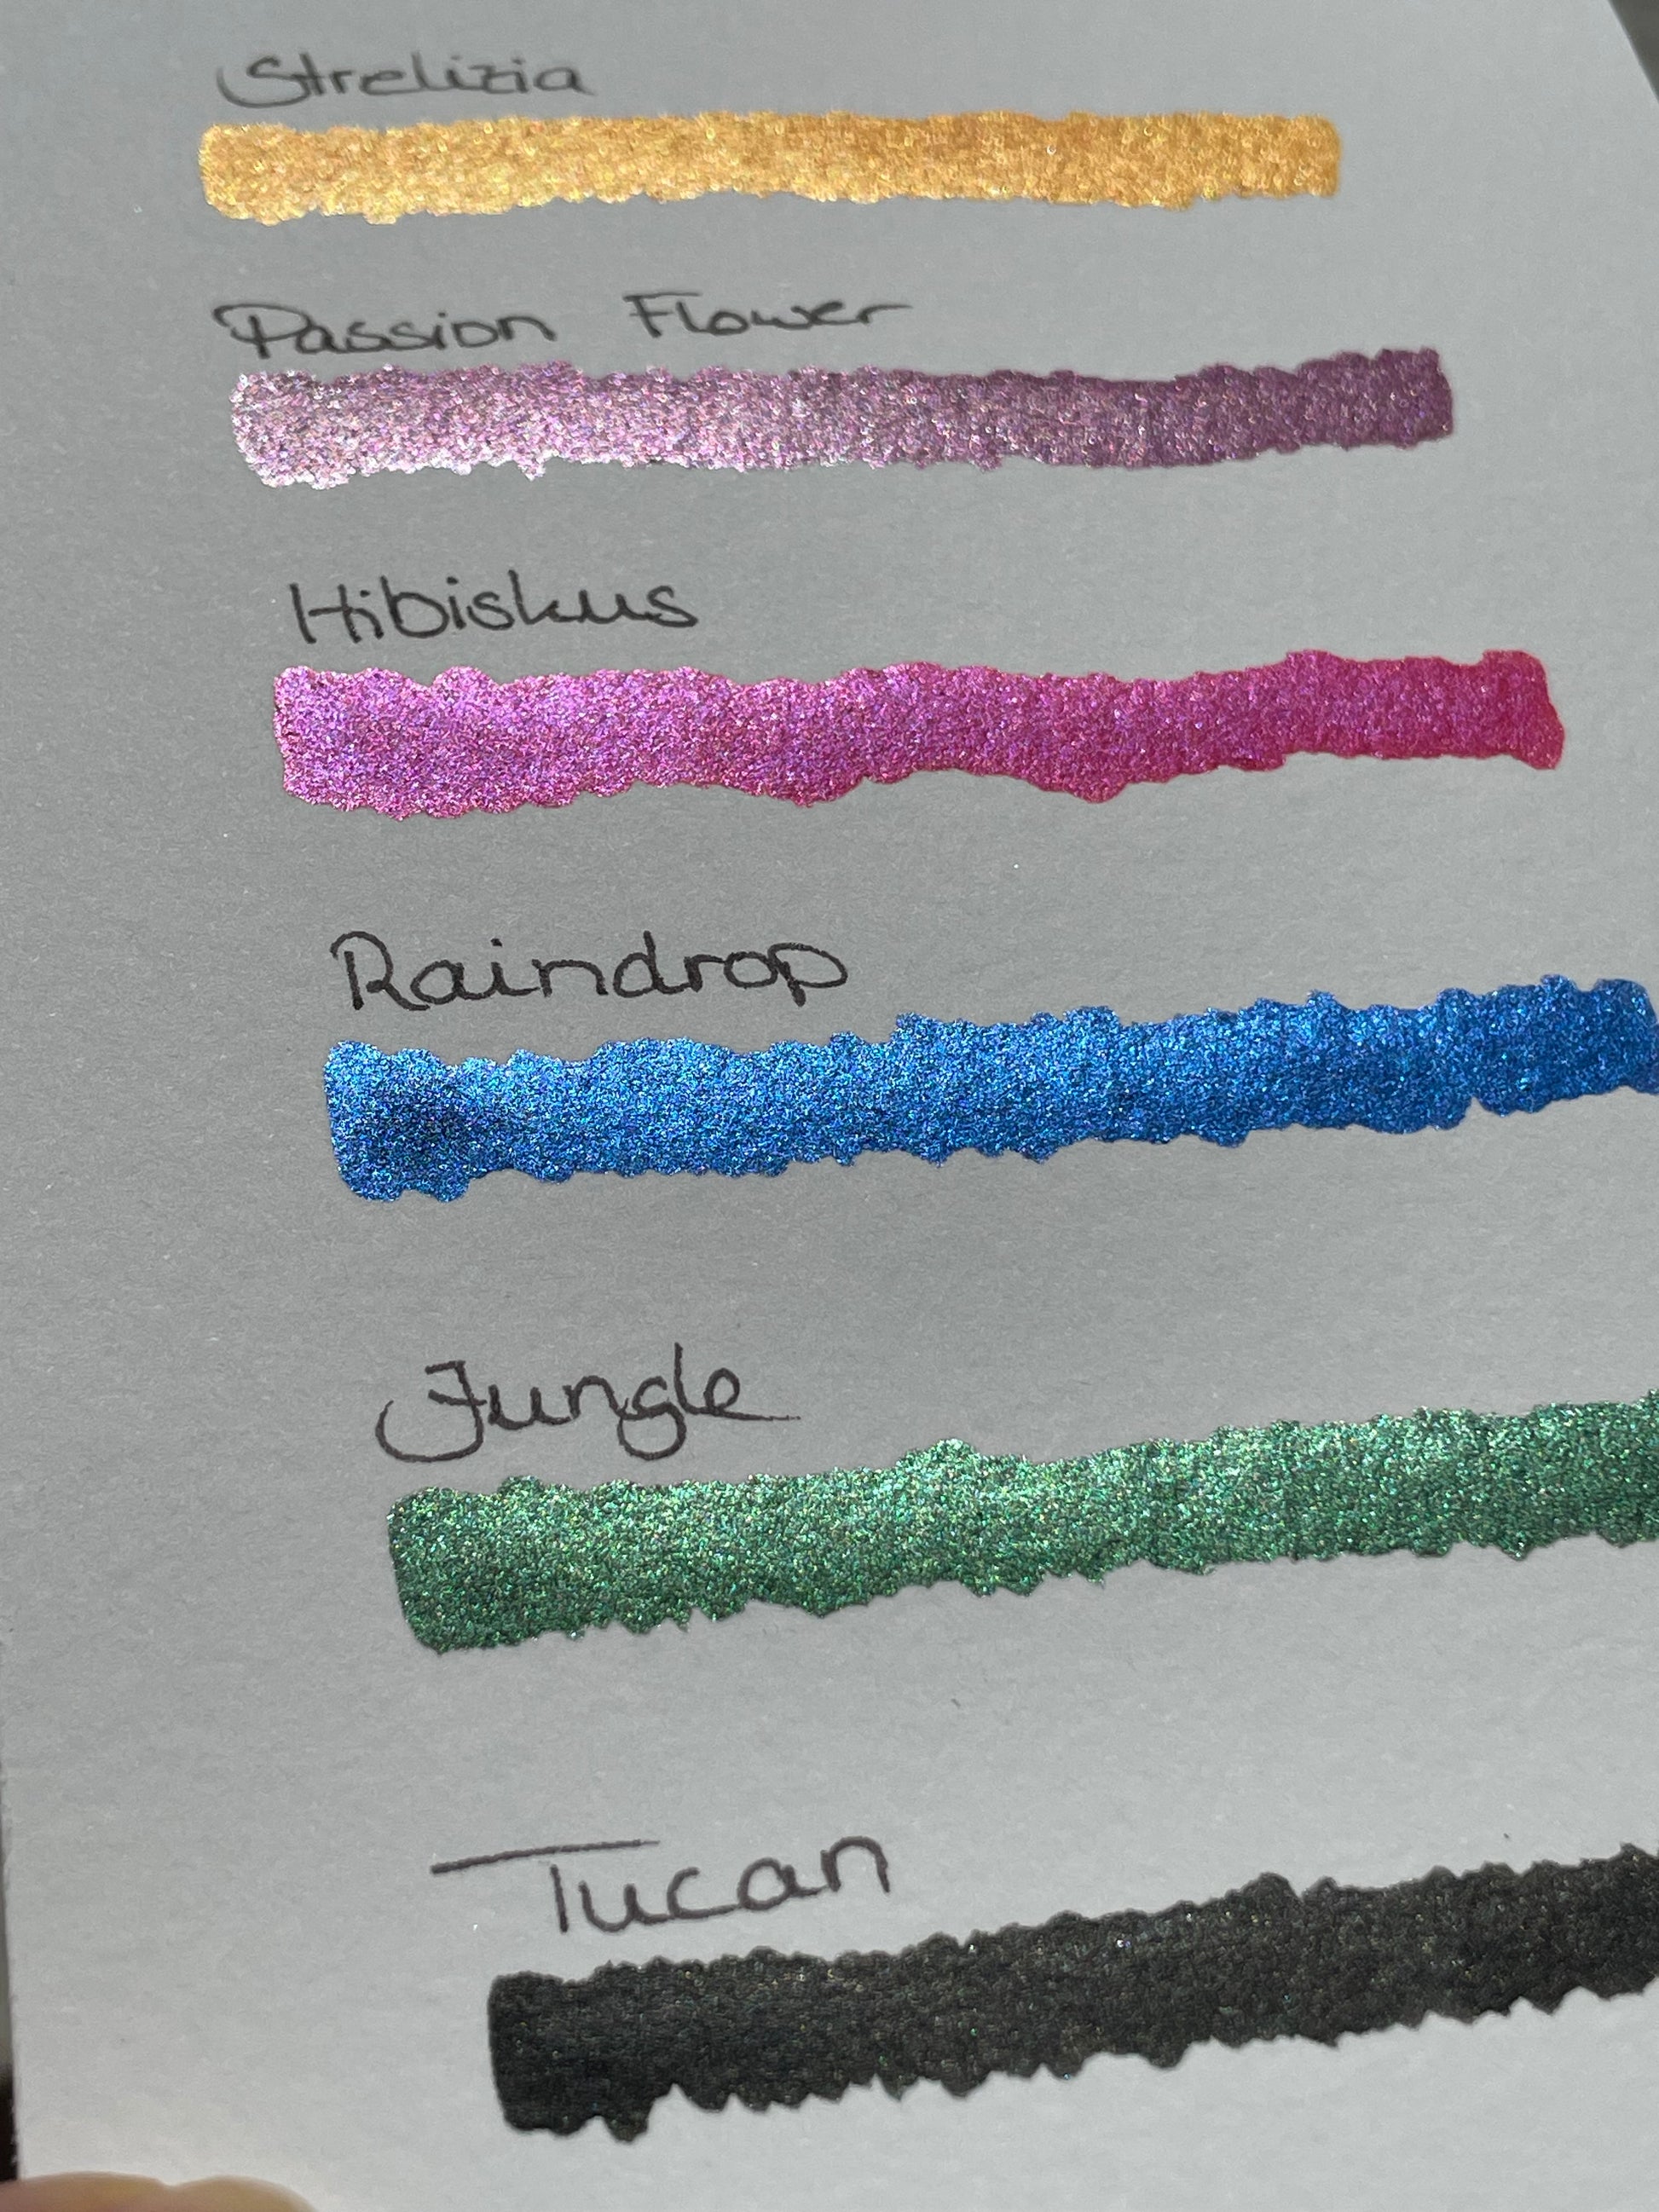 Strelizia
Passion Flower
Hibiskus
Raindrop
Jungle
Tucan